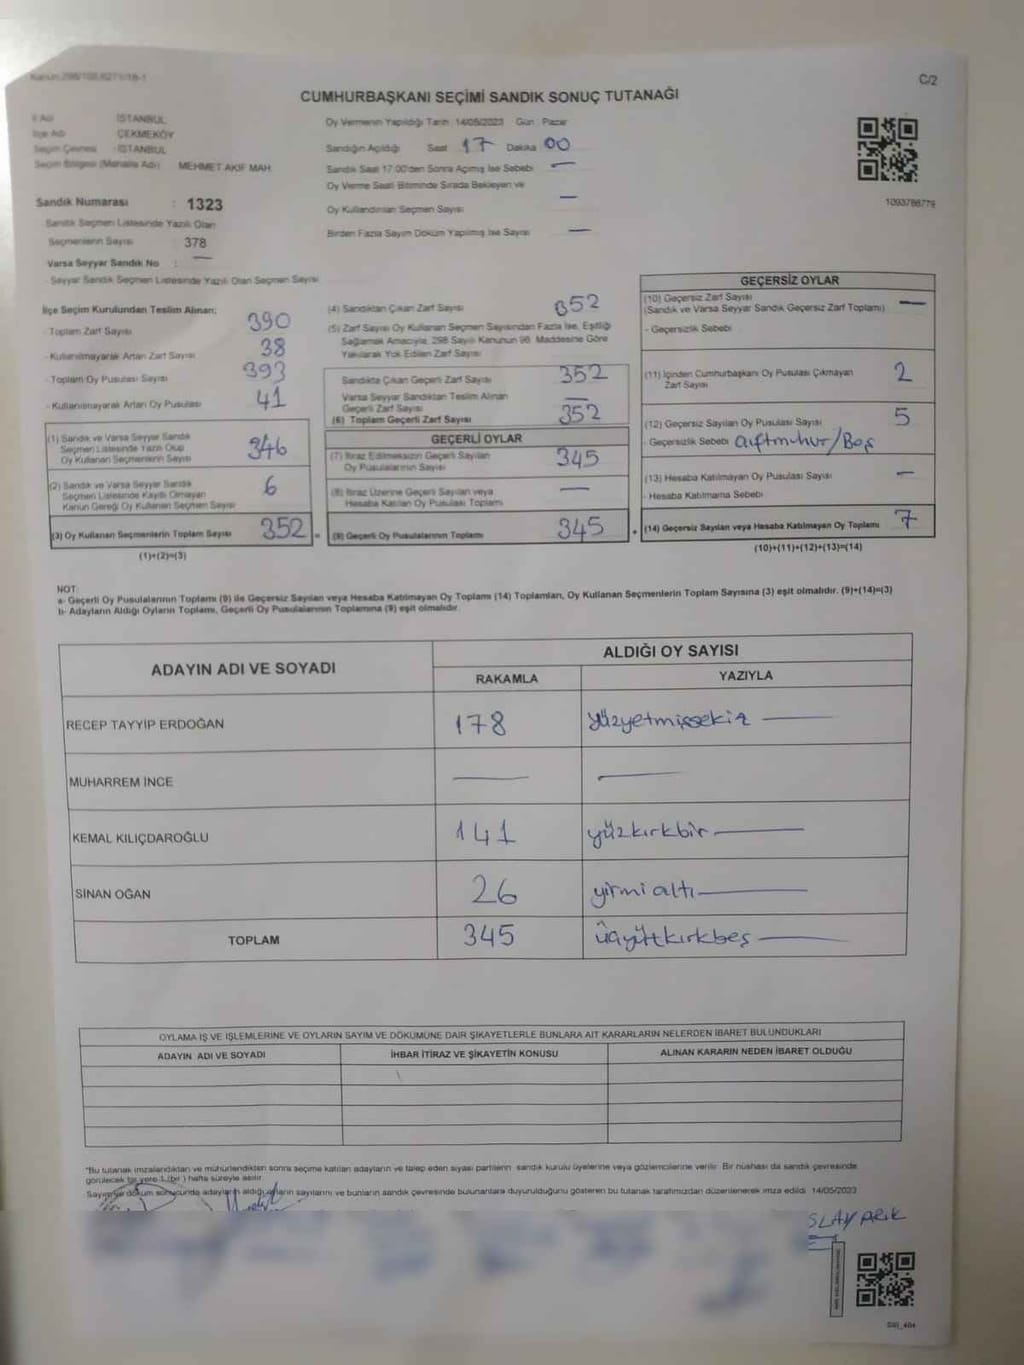 Kanun:298/105,6271/18-1
C/2
CUMHURBAŞKANI SEÇİMİ SANDIK SONUÇ TUTANAĞI
İl Adı İSTANBUL
İlçe Adı ÇEKMEKÖY
Seçim Çevresi İSTANBUL
Seçim Bölgesi (Mahalle Adı) MEHMET AKİF MAH.
Sandık Numarası : 1323
Sandık Seçmen Listesinde Yazılı Olan
Seçmenlerin Sayısı 378
Varsa Seyyar Sandık No : —
Seyyar Sandık Seçmen Listesinde Yazılı Olan Seçmen Sayısı
Oy Vermenin Yapıldığı Tarih 14/05/2023 Gün : Pazar
Sandığın Açıldığı Saat 17 Dakika 00
Sandık Saat 17.00'den Sonra Açılmış İse Sebebi —
Oy Verme Saati Bitiminde Sırada Bekleyen ve
Oy Kullandırılan Seçmen Sayısı —
Birden Fazla Sayım Döküm Yapılmış İse Sayısı —
1093786779
İlçe Seçim Kurulundan Teslim Alınan;
- Toplam Zarf Sayısı 390
- Kullanılmayarak Artan Zarf Sayısı 38
- Toplam Oy Pusulası Sayısı 393
- Kullanılmayarak Artan Oy Pusulası 41
(1) Sandık ve Varsa Seyyar Sandık
Seçmen Listesinde Yazılı Olup
Oy Kullanan Seçmenlerin Sayısı 346
(2) Sandık ve Varsa Seyyar Sandık
Seçmen Listesinde Kayıtlı Olmayan
Kanun Gereği Oy Kullanan Seçmen Sayısı 6
(3) Oy Kullanan Seçmenlerin Toplam Sayısı 352 =
(1)+(2)=(3)
(4) Sandıktan Çıkan Zarf Sayısı 352
(5) Zarf Sayısı Oy Kullanan Seçmen Sayısından Fazla İse, Eşitliği
Sağlamak Amacıyla, 298 Sayılı Kanunun 98. Maddesine Göre
Yakılarak Yok Edilen Zarf Sayısı
Sandıkta Çıkan Geçerli Zarf Sayısı 352
Varsa Seyyar Sandıktan Teslim Alınan
Geçerli Zarf Sayısı —
(6) Toplam Geçerli Zarf Sayısı 352
GEÇERLİ OYLAR
(7) İtiraz Edilmeksizin Geçerli Sayılan
Oy Pusulalarının Sayısı 345
(8) İtiraz Üzerine Geçerli Sayılan veya
Hesaba Katılan Oy Pusulası Toplamı —
(9) Geçerli Oy Pusulalarının Toplamı 345 +
GEÇERSİZ OYLAR
(10) Geçersiz Zarf Sayısı —
(Sandık ve Varsa Seyyar Sandık Geçersiz Zarf Toplamı)
- Geçersizlik Sebebi
(11) İçinden Cumhurbaşkanı Oy Pusulası Çıkmayan
Zarf Sayısı 2
(12) Geçersiz Sayılan Oy Pusulası Sayısı 5
- Geçersizlik Sebebi çiftmühür/Boş
(13) Hesaba Katılmayan Oy Pusulası Sayısı —
- Hesaba Katılmama Sebebi
(14) Geçersiz Sayılan veya Hesaba Katılmayan Oy Toplamı 7
(10)+(11)+(12)+(13)=(14)
NOT:
a- Geçerli Oy Pusulalarının Toplamı (9) ile Geçersiz Sayılan veya Hesaba Katılmayan Oy Toplamı (14) Toplamları, Oy Kullanan Seçmenlerin Toplam Sayısına (3) eşit olmalıdır. (9)+(14)=(3)
b- Adayların Aldığı Oyların Toplamı, Geçerli Oy Pusulalarının Toplamına (9) eşit olmalıdır.
ADAYIN ADI VE SOYADI
ALDIĞI OY SAYISI
RAKAMLA YAZIYLA
RECEP TAYYİP ERDOĞAN 178 yüzyetmişsekiz —
MUHARREM İNCE — —
KEMAL KILIÇDAROĞLU 141 yüzkırkbir —
SİNAN OĞAN 26 yirmialtı —
TOPLAM 345 üçyüzkırkbeş —
OYLAMA İŞ VE İŞLEMLERİNE VE OYLARIN SAYIM VE DÖKÜMÜNE DAİR ŞİKAYETLERLE BUNLARA AİT KARARLARIN NELERDEN İBARET BULUNDUKLARI
ADAYIN ADI VE SOYADI İHBAR İTİRAZ VE ŞİKAYETİN KONUSU ALINAN KARARIN NEDEN İBARET OLDUĞU
"Bu tutanak imzalandıktan ve mühürlendikten sonra seçime katılan adayların ve talep eden siyasi partilerin sandık kurulu üyelerine veya gözlemcilerine verilir. Bir nüshası da sandık çevresinde
görülecek bir yere 1 (bir) hafta süreyle asılır.
Sayım ve döküm sonucunda adayların aldığı oyların sayılarını ve bunların sandık çevresinde bulunanlara duyurulduğunu gösteren bu tutanak tarafımızdan düzenlenerek imza edildi. 14/05/2023